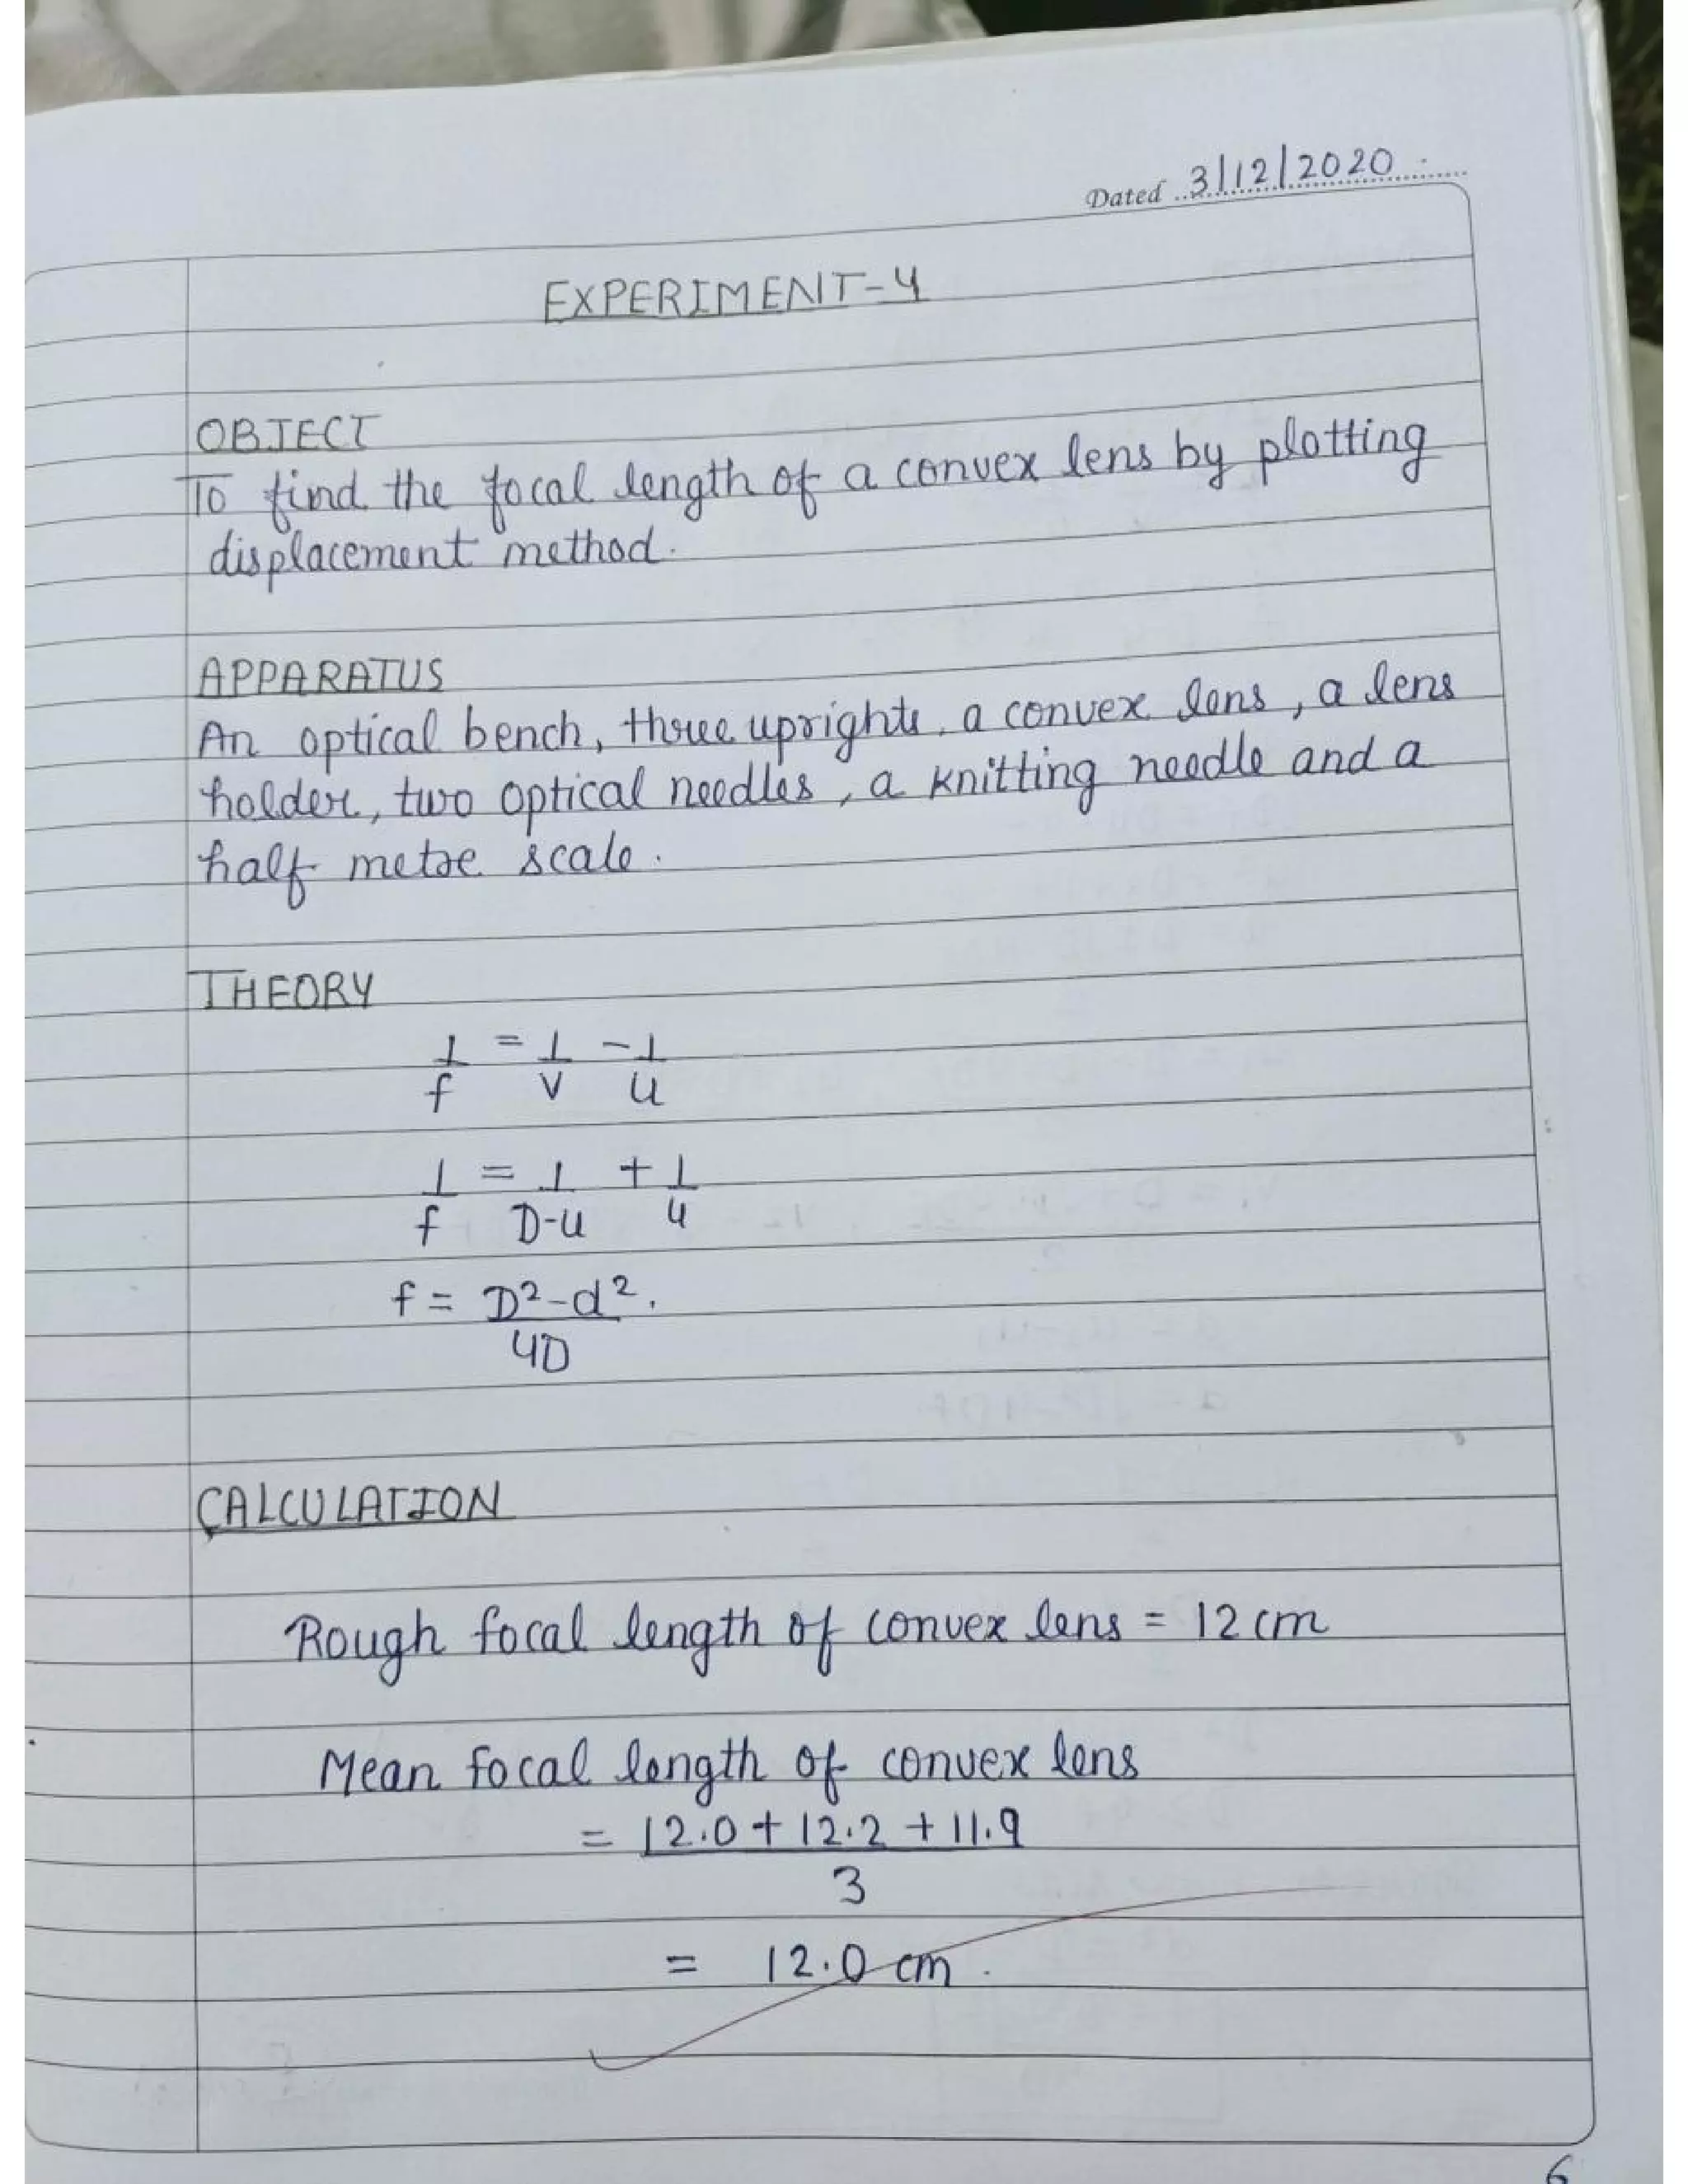 Dated 3/12/2020
EXPERIMENT-4
OBJECT
To find the focal length of a convex lens by plotting
displacement method.
APPARATUS
An optical bench, three uprights, a convex lens, a lens
holder, two optical needles, a knitting needle and a
half metre scale.
THEORY
1/f = 1/v - 1/u
1/f = 1/D-u + 1/u
f = D²-d²/4D.
CALCULATION
Rough focal length of convex lens = 12 cm
Mean focal length of convex lens
= 12.0 + 12.2 + 11.9 / 3
= 12.0 cm.
6